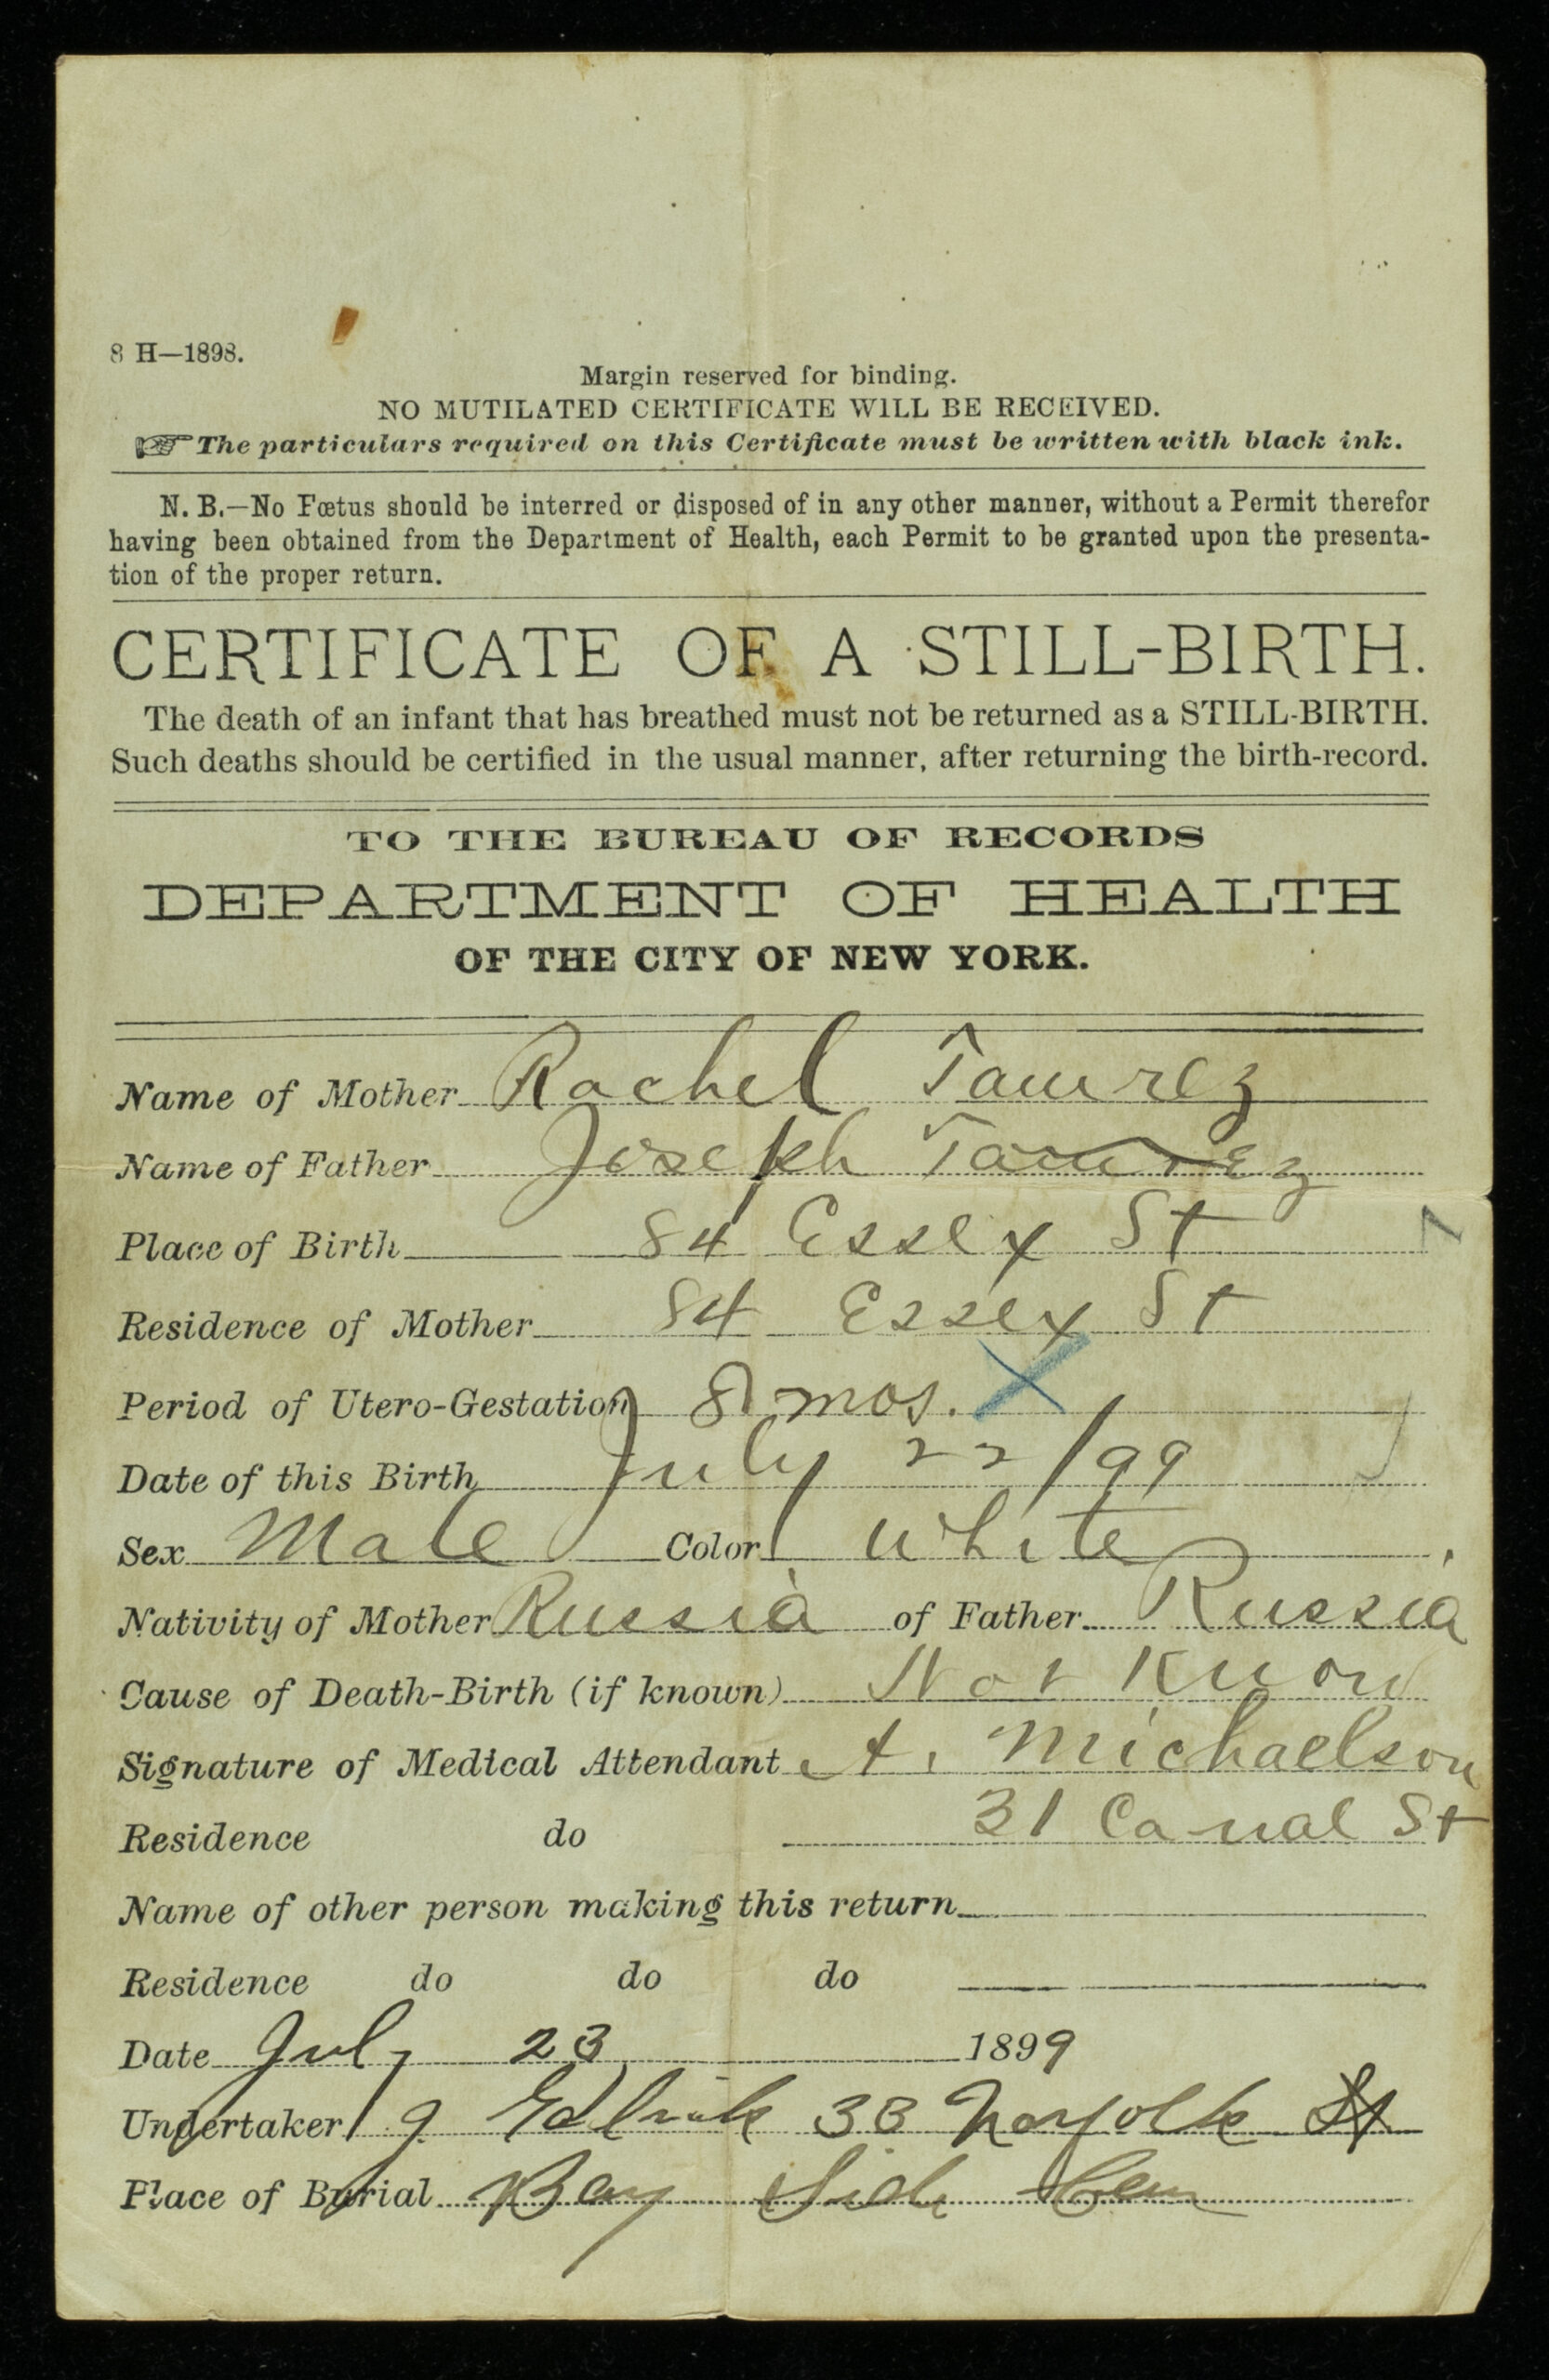 8 H—1898.
Margin reserved for binding.
NO MUTILATED CERTIFICATE WILL BE RECEIVED.
☞ The particulars required on this Certificate must be written with black ink.
N. B.—No Fœtus should be interred or disposed of in any other manner, without a Permit therefor
having been obtained from the Department of Health, each Permit to be granted upon the presenta-
tion of the proper return.
CERTIFICATE OF A STILL-BIRTH.
The death of an infant that has breathed must not be returned as a STILL-BIRTH.
Such deaths should be certified in the usual manner, after returning the birth-record.
TO THE BUREAU OF RECORDS
DEPARTMENT OF HEALTH
OF THE CITY OF NEW YORK.
Name of Mother Rachel
Name of Father Joseph
Place of Birth 84 Essex St
Residence of Mother 84 Essex St
Period of Utero-Gestation 8 mos. X
Date of this Birth July 22/99
Sex Male Color White
Nativity of Mother Russia of Father Russia
Cause of Death-Birth (if known) Not Know
Signature of Medical Attendant A. Michaelson
Residence do 31 Canal St
Name of other person making this return
Residence do do do
Date July 23 1899
Undertaker 33 Norfolk St
Place of Burial Bay Side Cem